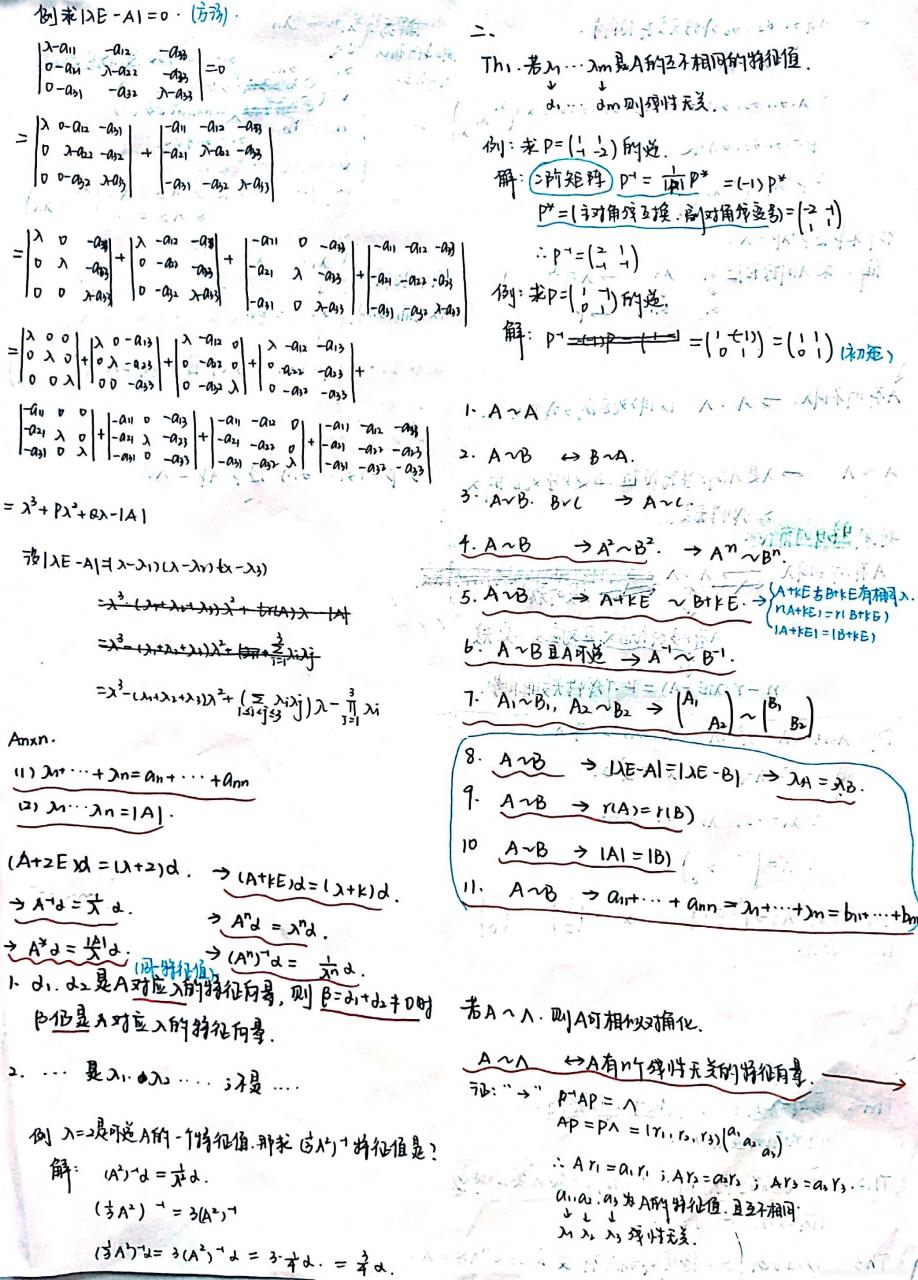 例 求|λE-A|=0. (方法)
|λ-a11 -a12 -a33|
|0-a21 λ-a22 -a23| =0
|0-a31 -a32 λ-a33|
= |λ 0-a12 -a31| + |-a11 -a12 -a33|
|0 λ-a22 -a32| |-a21 λ-a22 -a23|
|0 0-a32 λ-a33| |-a31 -a32 λ-a33|
= |λ 0 -a33| + |λ -a12 -a33| + |-a11 0 -a33| + |-a11 -a12 -a33|
|0 λ -a23| |0 -a22 -a23| |-a21 λ -a23| |-a21 -a22 -a23|
|0 0 λ-a33| |0 -a32 λ-a33| |-a31 0 λ-a33| |-a31 -a32 λ-a33|
= |λ 0 0| + |λ 0 -a13| + |λ -a12 0| + |λ -a12 -a13| +
|0 λ 0| |0 λ -a23| |0 -a22 0| |0 -a22 -a23|
|0 0 λ| |0 0 -a33| |0 -a32 λ| |0 -a32 -a33|
|-a11 0 0| + |-a11 0 -a13| + |-a11 -a12 0| + |-a11 -a12 -a33|
|-a21 λ 0| |-a21 λ -a23| |-a21 -a22 0| |-a21 -a22 -a23|
|-a31 0 λ| |-a31 0 -a33| |-a31 -a32 λ| |-a31 -a32 -a33|
= λ³+Pλ²+Qλ-|A|
设|λE-A|=(λ-λ1)(λ-λ2)(λ-λ3)
=λ³-(λ1+λ2+λ3)λ²+(∑ λiλj)λ-∏λi
1≤i<j≤3 3 j=1
Anxn.
(1) λ1+⋯+λn=a11+⋯+ann
(2) λ1⋯λn=|A|.
(A+2E)α=(λ+2)α. → (A+kE)α=(λ+k)α.
→ A⁻¹α=1/λ α. → Aⁿα=λⁿα.
→ A*α=|A|/λ α. → (Aⁿ)⁻¹α=1/λⁿ α.
(同一特征值)
1. α1.α2是A对应λ的特征向量, 则β=α1+α2≠0时
β仍是A对应λ的特征向量.
2. ⋯ 是λ1.λ2 ⋯ ;不是 ⋯
例 λ=2是可逆A的一个特征值.那求(⅓A²)⁻¹特征值是?
解: (A²)⁻¹α=1/λ²α.
(⅓A²)⁻¹=3(A²)⁻¹
(⅓A²)⁻¹α=3(A²)⁻¹α=3·¼α.=¾α.
二、
Th1.若λ1⋯λm是A的互不相同的特征值.
↓ ↓
α1⋯αm则线性无关.
例:求P=(1 1; -1 -2)的逆.
解: 二阶矩阵 P⁻¹=1/|P| P* =(-1)P*
P*=(主对角线互换.副对角线变号)=(-2 -1; 1 1)
∴P⁻¹=(2 1; -1 -1)
例:求P=(1 -1; 0 1)的逆.
解: P⁻¹ =(1 -(-1); 0 1)=(1 1; 0 1) (初矩)
1. A~A
2. A~B ↔ B~A.
3. A~B. B~C → A~C.
4. A~B → A²~B². → Aⁿ~Bⁿ.
5. A~B → A+kE ~ B+kE. → {A+kE与B+kE有相同λ.
r(A+kE)=r(B+kE)
|A+kE|=|B+kE|
6. A~B且A可逆 → A⁻¹~B⁻¹.
7. A1~B1, A2~B2 → (A1 A2)~(B1 B2)
8. A~B → |λE-A|=|λE-B| → λA=λB.
9. A~B → r(A)=r(B)
10 A~B → |A|=|B|
11. A~B → a11+⋯+ann=λ1+⋯+λn=b11+⋯+bnn
若A~Λ.则A可相似对角化.
A~Λ ↔A有n个线性无关的特征向量.
证:"→" P⁻¹AP=Λ
AP=PΛ=(r1,r2,r3)(a1 a2 a3)
∴Ar1=a1r1;Ar2=a2r2;Ar3=a3r3.
a1.a2.a3为A的特征值.且互不相同
↓ ↓ ↓
λ1 λ2 λ3 线性无关.